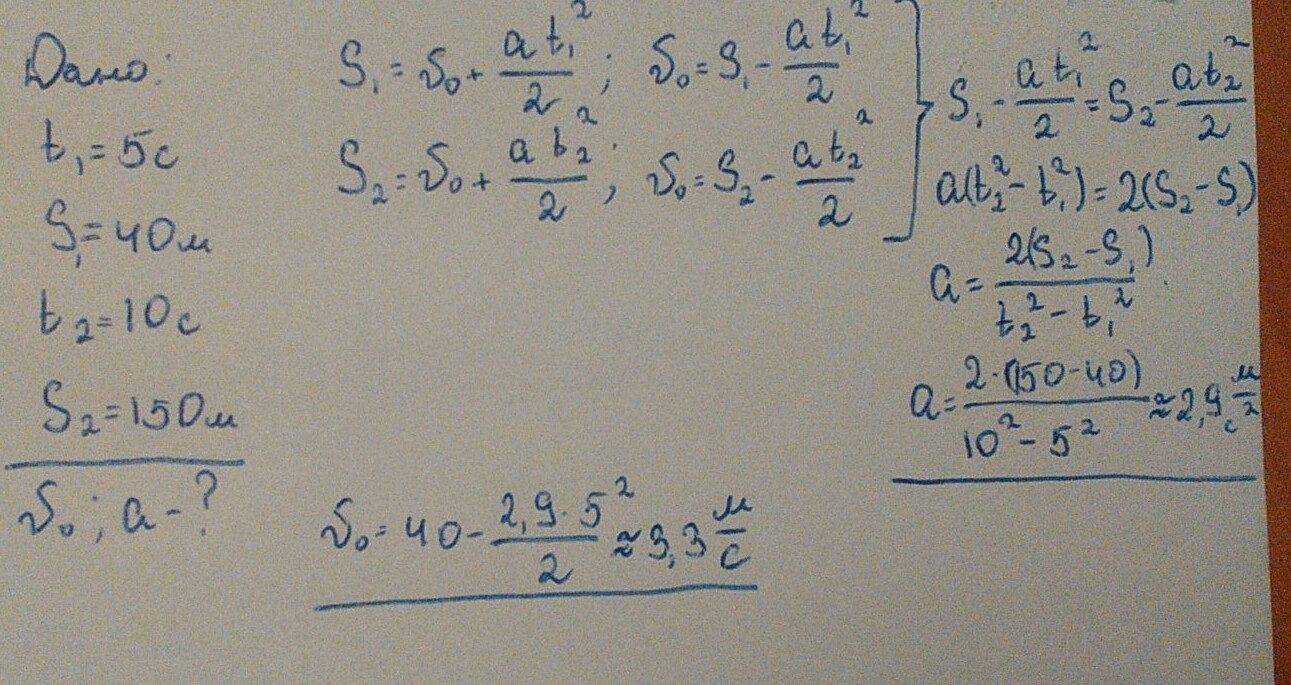 Дано:
t₁=5с
S₁=40м
t₂=10с
S₂=150м
υ₀; a-?
S₁=υ₀+at₁²/2; υ₀=S₁-at₁²/2
S₂=υ₀+at₂²/2; υ₀=S₂-at₂²/2
}
S₁-at₁²/2=S₂-at₂²/2
a(t₂²-t₁²)=2(S₂-S₁)
a=2(S₂-S₁)/t₂²-t₁²
a=2·(150-40)/10²-5²≈2,9м/с²
υ₀=40-2,9·5²/2≈3,3м/с